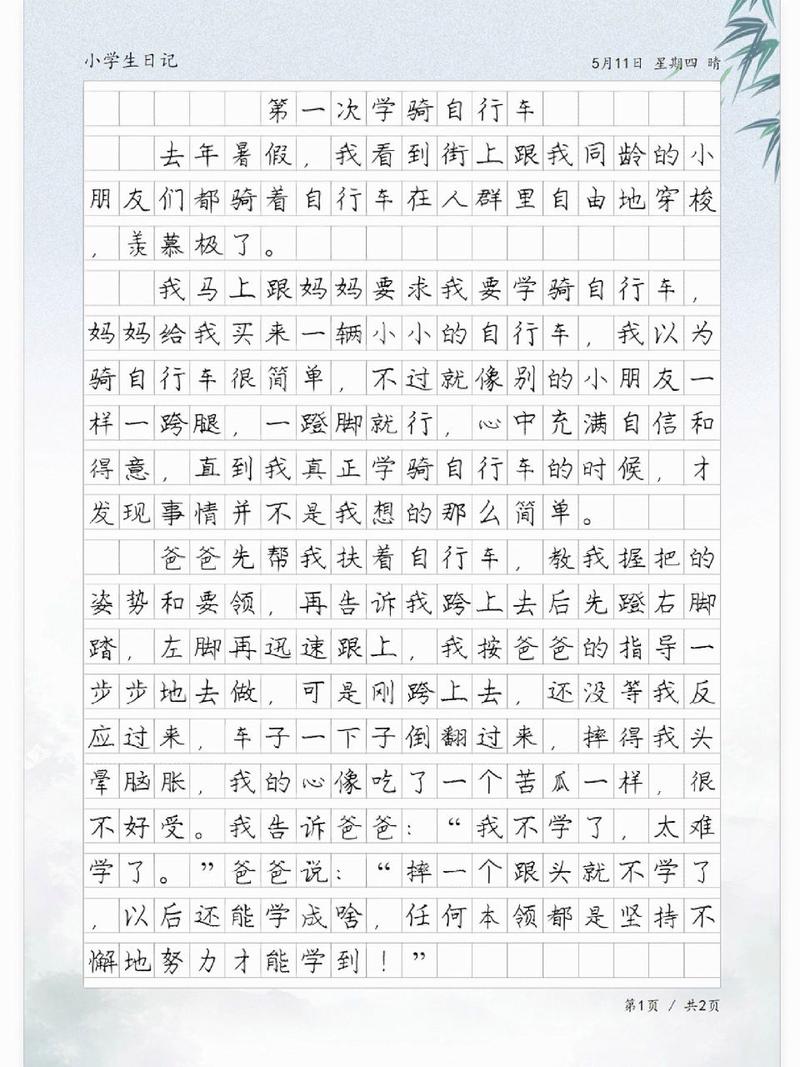 小学生日记
5月11日 星期四 晴
第一次学骑自行车
去年暑假，我看到街上跟我同龄的小
朋友们都骑着自行车在人群里自由地穿梭
，羡慕极了。
我马上跟妈妈要求我要学骑自行车，
妈妈给我买来一辆小小的自行车，我以为
骑自行车很简单，不过就像别的小朋友一
样一跨腿，一蹬脚就行，心中充满自信和
得意，直到我真正学骑自行车的时候，才
发现事情并不是我想的那么简单。
爸爸先帮我扶着自行车，教我握把的
姿势和要领，再告诉我跨上去后先蹬右脚
踏，左脚再迅速跟上，我按爸爸的指导一
步步地去做，可是刚跨上去，还没等我反
应过来，车子一下子倒翻过来，摔得我头
晕脑胀，我的心像吃了一个苦瓜一样，很
不好受。我告诉爸爸：“我不学了，太难
学了。”爸爸说：“摔一个跟头就不学了
，以后还能学成啥，任何本领都是坚持不
懈地努力才能学到！”
第1页 / 共2页